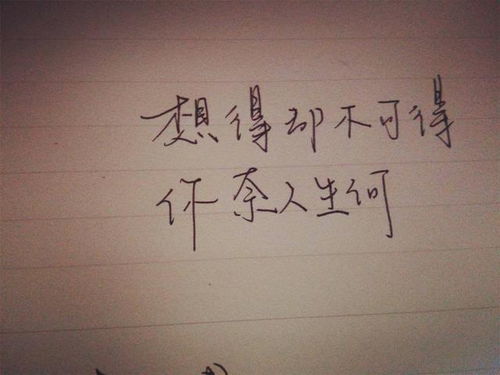 想得却不可得
你奈人生何